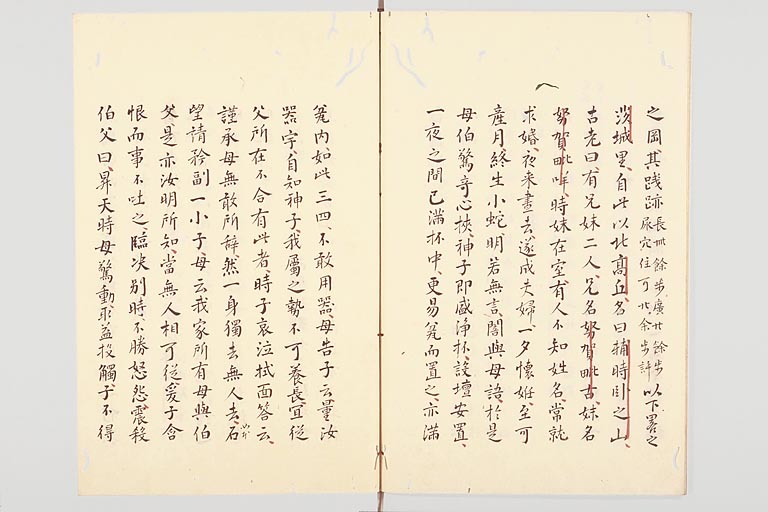 之岡其践跡長卅餘歩廣廿餘歩尿穴住可廿余歩許以下畧之
茨城里自此以北高丘名曰輔時臥之山
古老曰有兄妹二人兄名努賀毗古妹名
努賀毗咩時妹在室有人不知姓名常就
求婚夜来晝去遂成夫婦一夕懐妊至可
産月終生小蛇明若無言闇與母語於是
母伯驚奇心挟神子即盛浄坏設壇安置
一夜之間已満坏中更易瓮而置之亦満
瓮内如此三四不敢用器母告子云量汝
器宇自知神子我屬之勢不可養長宜従
父所在不合有此者時子哀泣拭面答云
謹承母無敢所辞然一身獨去無人去石
望請矜副一小子母云我家所有母與伯
父是亦汝明所知當無人相可従爰子含
恨而事不吐之臨决別時不勝怒怨震殺
伯父曰昇天時母驚動取益投觸子不得